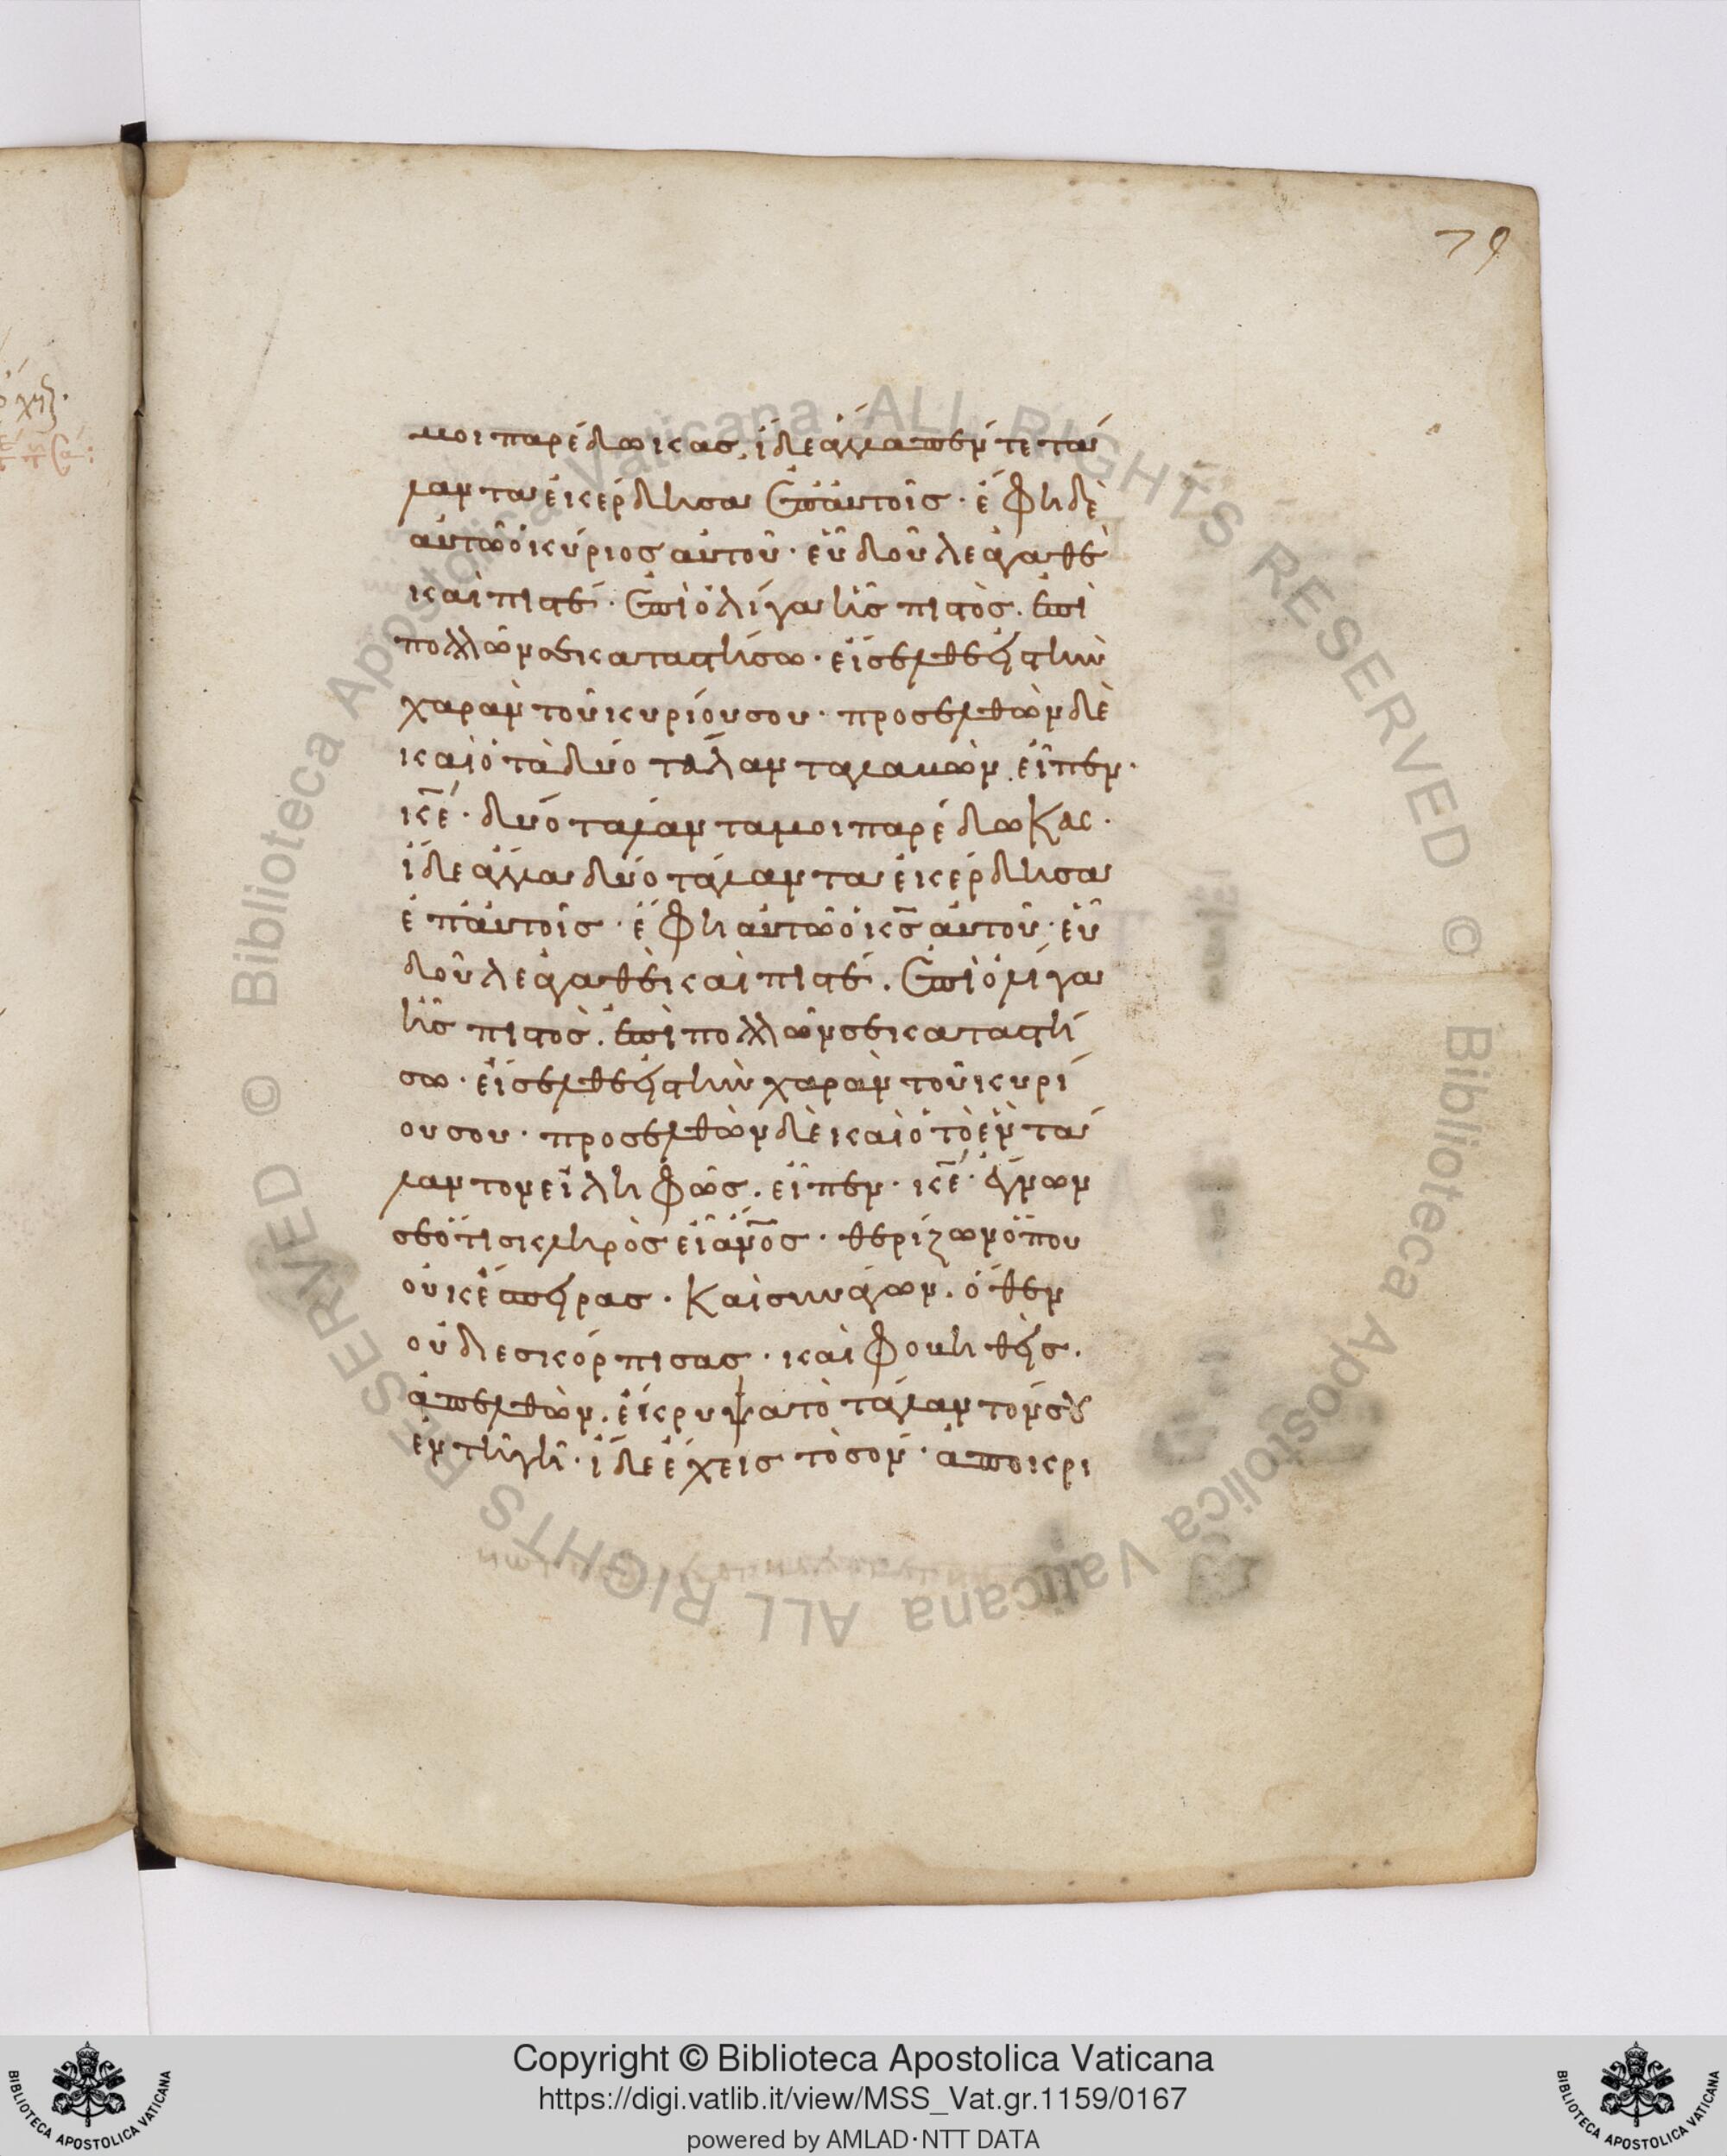 79
μοι παρέδωκας. ἴδε ἄλλα πέντε τά
λαντα ἐκέρδησα ἐπ' αὐτοῖς· ἔφη δὲ
αὐτῶ ὁ κύριος αὐτοῦ· εὖ δοῦλε ἀγαθὲ
καὶ πιστέ· ἐπὶ ὀλίγα ἦς πιστὸς. ἐπὶ
πολλῶν σε καταστήσω· εἴσελθε εἰς τὴν
χαρὰν τοῦ κυρίου σου· προσελθὼν δὲ
καὶ ὁ τὰ δύο τάλαντα λαβὼν. εἶπεν·
κ̅ε̅· δύο τάλαντα μοι παρέδωκας·
ἴδε ἄλλα δύο τάλαντα ἐκέρδησα
ἐπ' αὐτοῖς· ἔφη αὐτῶ ὁ κ̅ς̅ αὐτοῦ· εὖ
δοῦλε ἀγαθὲ καὶ πιστέ. ἐπὶ ὀλίγα
ἦς πιστὸς. ἐπὶ πολλῶν σε καταστή
σω· εἴσελθε εἰς τὴν χαρὰν τοῦ κυρί
ου σου· προσελθὼν δὲ καὶ ὁ τὸ ἓν τά
λαντον εἰληφῶς. εἶπεν· κ̅ε̅· ἔγνων
σε ὅτι σκληρὸς εἶ ἄν̅ο̅ς· θερίζων ὅπου
οὐκ ἔσπειρας· Καὶ συνάγων. ὅθεν
οὐ διεσκόρπισας· καὶ φοβηθεὶς.
ἀπελθὼν. ἔκρυψα τὸ τάλαντόν σου
ἐν τῆ γῆ· ἴδε ἔχεις τὸ σόν· ἀποκρι
Copyright © Biblioteca Apostolica Vaticana
https://digi.vatlib.it/view/MSS_Vat.gr.1159/0167
powered by AMLAD·NTT DATA
BIBLIOTECA APOSTOLICA VATICANA
BIBLIOTECA APOSTOLICA VATICANA
© Biblioteca Apostolica Vaticana ALL RIGHTS RESERVED © Biblioteca Apostolica Vaticana ALL RIGHTS RESERVED